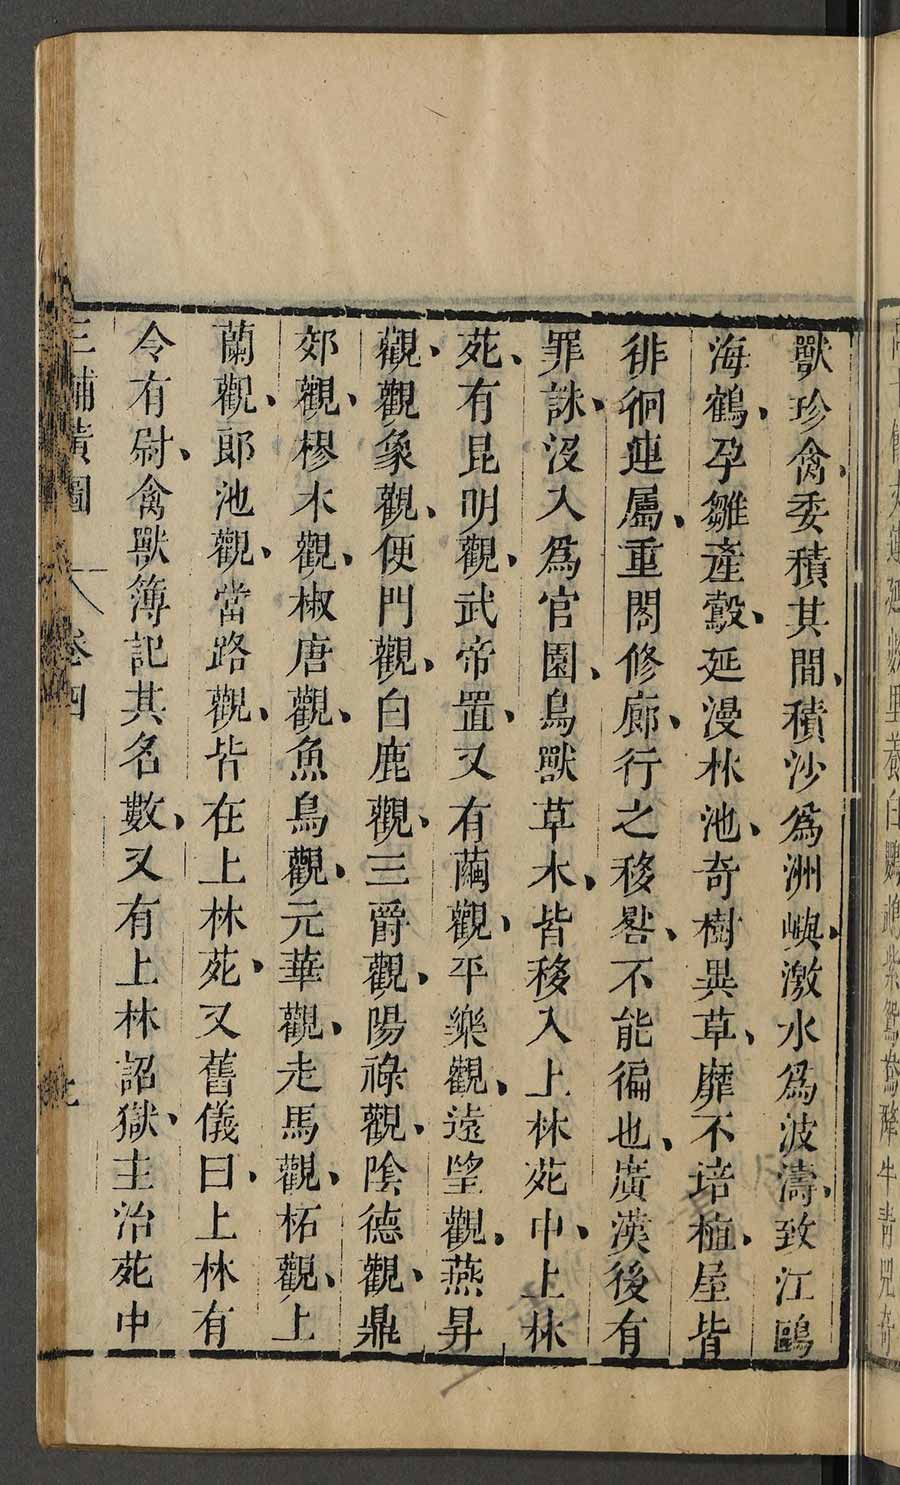 獸珍禽、委積其間、積沙爲洲嶼、激水爲波濤、致江鷗
海鶴、孕雛產鷇、延漫林池、奇樹異草、靡不培植、屋皆
徘徊連屬、重閣修廊、行之移晷、不能徧也、廣漢後有
罪誅、沒入爲官園、鳥獸草木、皆移入上林苑中、上林
苑、有昆明觀、武帝置、又有繭觀、平樂觀、遠望觀、燕昇
觀、觀象觀、便門觀、白鹿觀、三爵觀、陽祿觀、陰德觀、鼎
郊觀、樛木觀、椒唐觀、魚鳥觀、元華觀、走馬觀、柘觀、上
蘭觀、郎池觀、當路觀、皆在上林苑、又舊儀曰、上林有
令有尉、禽獸簿記其名數、又有上林詔獄、主治苑中
三輔黃圖 卷四